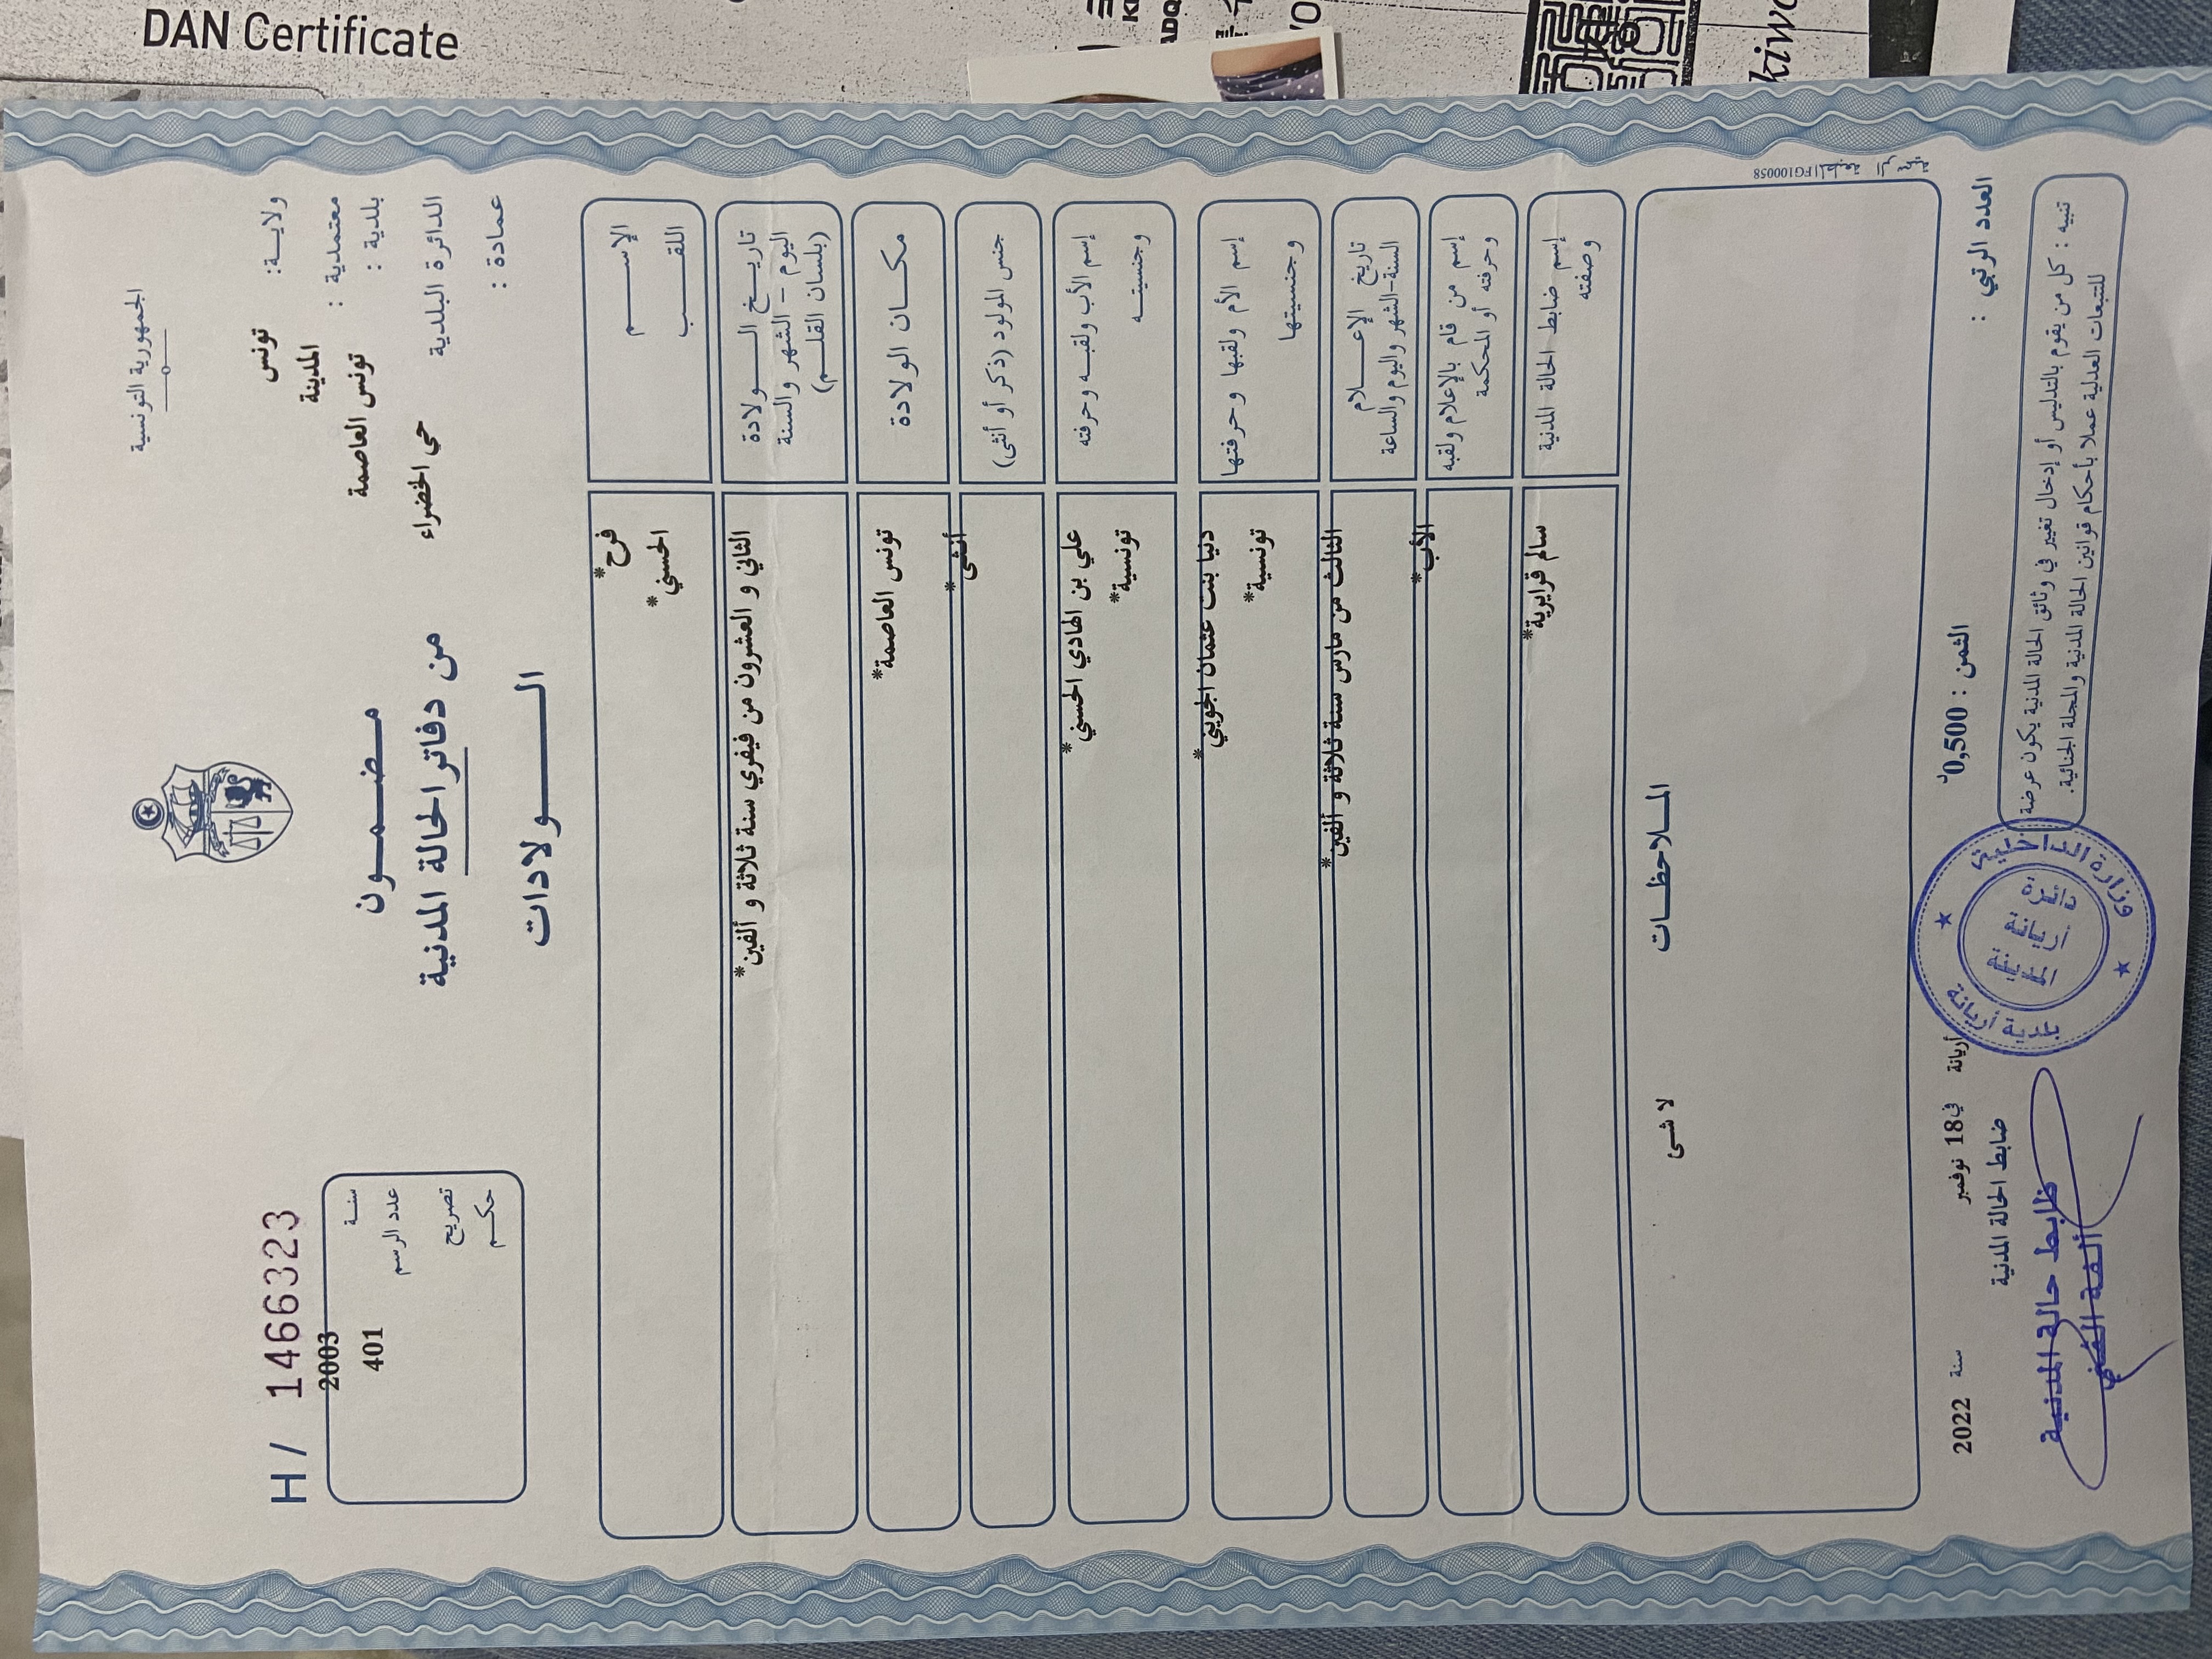 DAN Certificate
kiwo
الجمهورية التونسية
ولايـــة: تونس
معتمدية : المدينة
بلدية : تونس العاصمة
الدائرة البلدية حي الخضراء
عمادة :
H/ 1466323
سنـة 2003
عدد الرسم 401
تصريح
حكـم
مـضـمـــون
من دفاتر الحالة المدنية
الــــولادات
الإســــــم فرح*
اللقــــب الحسني*
تاريــخ الــــولادة
اليوم - الشهر والسنة
(بلسان القلـم)
الثاني و العشرون من فيفري سنة ثلاثة و ألفين*
مكــان الولادة تونس العاصمة*
جنس المولود (ذكر أو أنثى) أنثى*
إسم الأب ولقبـه وحرفته علي بن الهادي الحسني*
وجنسيتــه تونسية*
إسم الأم ولقبها وحرفتها دنيا بنت عثمان الجويني*
وجنسيتها تونسية*
تاريخ الإعـــلام
السنة-الشهر واليوم والساعة
الثالث من مارس سنة ثلاثة و ألفين*
إسم من قام بالإعلام ولقبه الأب*
وحرفته أو المحكمة
إسم ضابط الحالة المدنية سالم قرايرية*
وصفته
المـلاحظـات
لا شئ
FG100058
العدد الرتبي :
الثمن : 0,500د
أريانة في 18 نوفمبر سنة 2022
ضابط الحالة المدنية
تنبيه : كل من يقوم بالتدليس أو إدخال تغيير في وثائق الحالة المدنية يكون عرضة
للتتبعات العدلية عملا بأحكام قوانين الحالة المدنية والمجلة الجنائية.
وزارة الداخلية
بلدية أريانة
دائرة
أريانة
المدينة
ظابط حالة المدنية